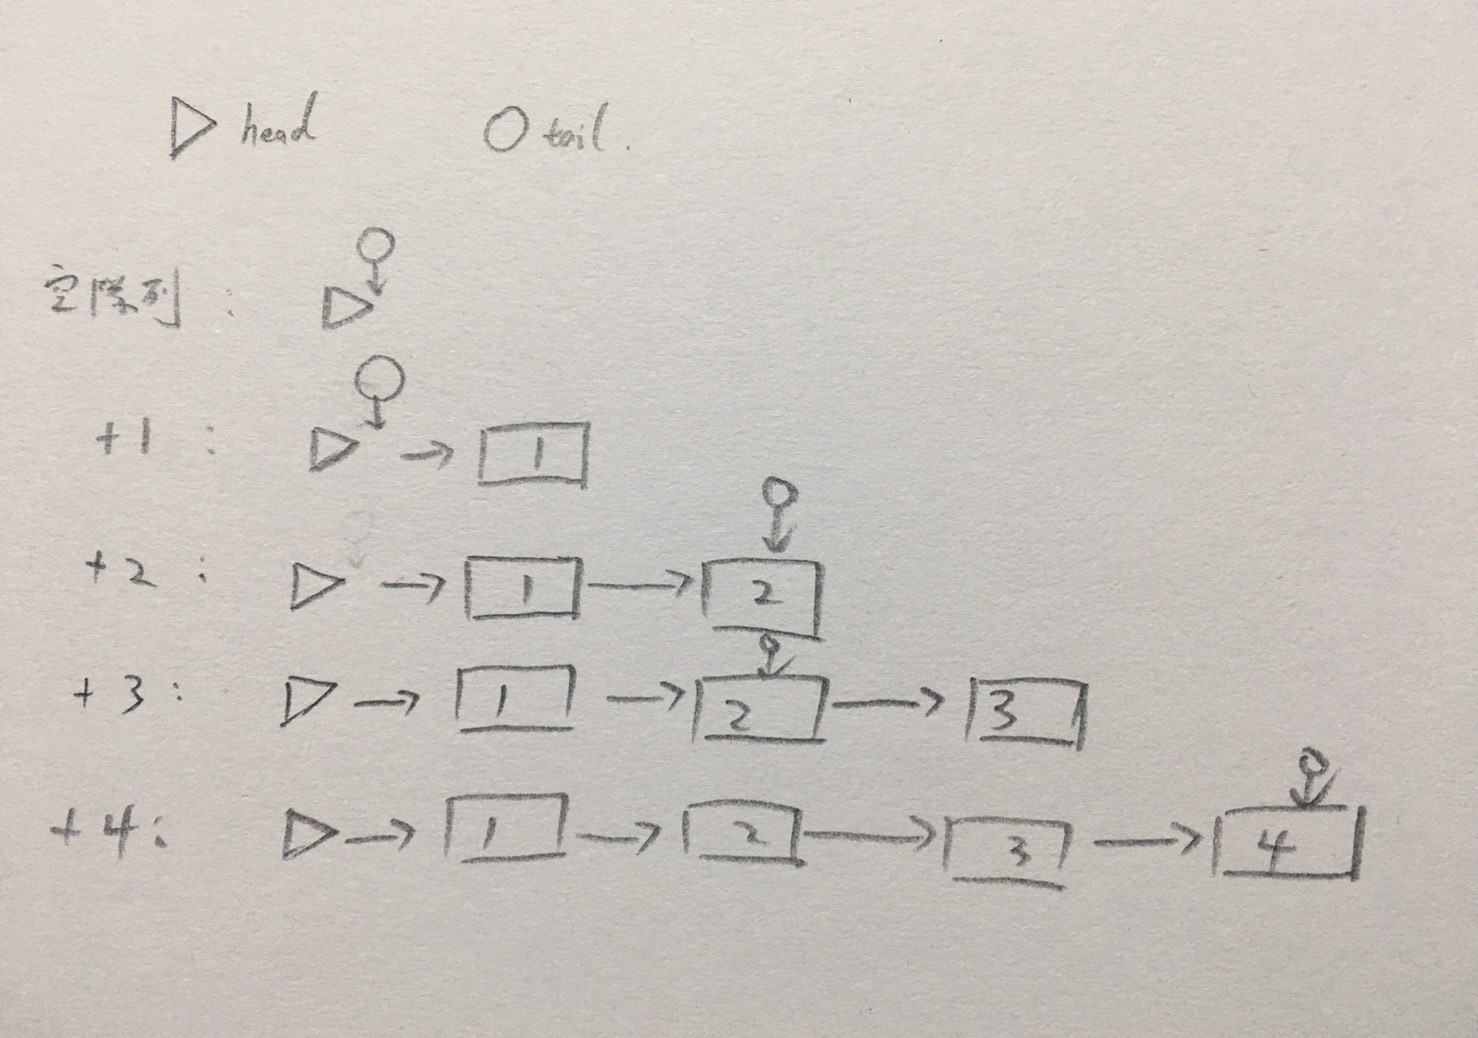 head tail.
空队列:
+1: 1
+2: 1 2
+3: 1 2 3
+4: 1 2 3 4